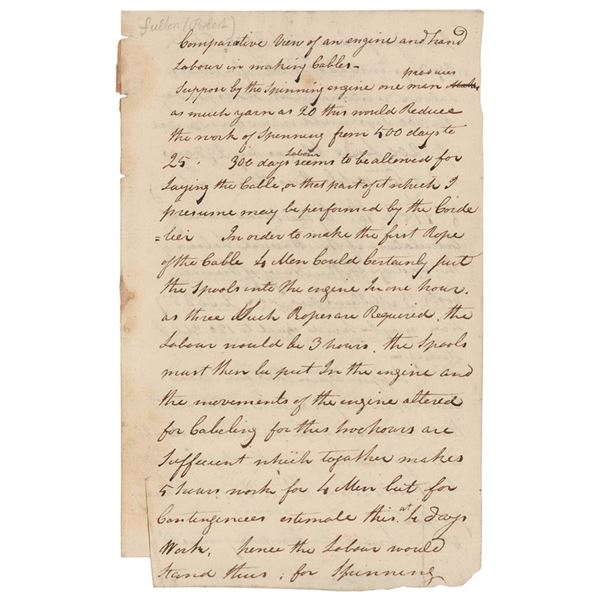 Fulton (Robert)
Comparative View of an engine and hand
Labour in making Cables –
produces
Suppose by the Spinning engine one man Makes
as much yarn as 20 this would Reduce
the work of Spinning from 500 days to
Labour
25. 300 days seems to be allowed for
Laying the Cable, or that part of it which I
presume may be performed by the Corde
=lier In order to make the first Rope
of the Cable 4 Men Could Certainly put
the Spools into the engine In one hour.
as three Such Ropes are Required, the
Labour would be 3 hours, the Spools
must then be put In the engine and
the movements of the engine altered
for Cabeling for this two hours are
Suffecient which together makes
5 hours work for 4 Men but for
at
Contengences estemate this 4 days
Work, hence the Labour would
Stand thus; for Spinning